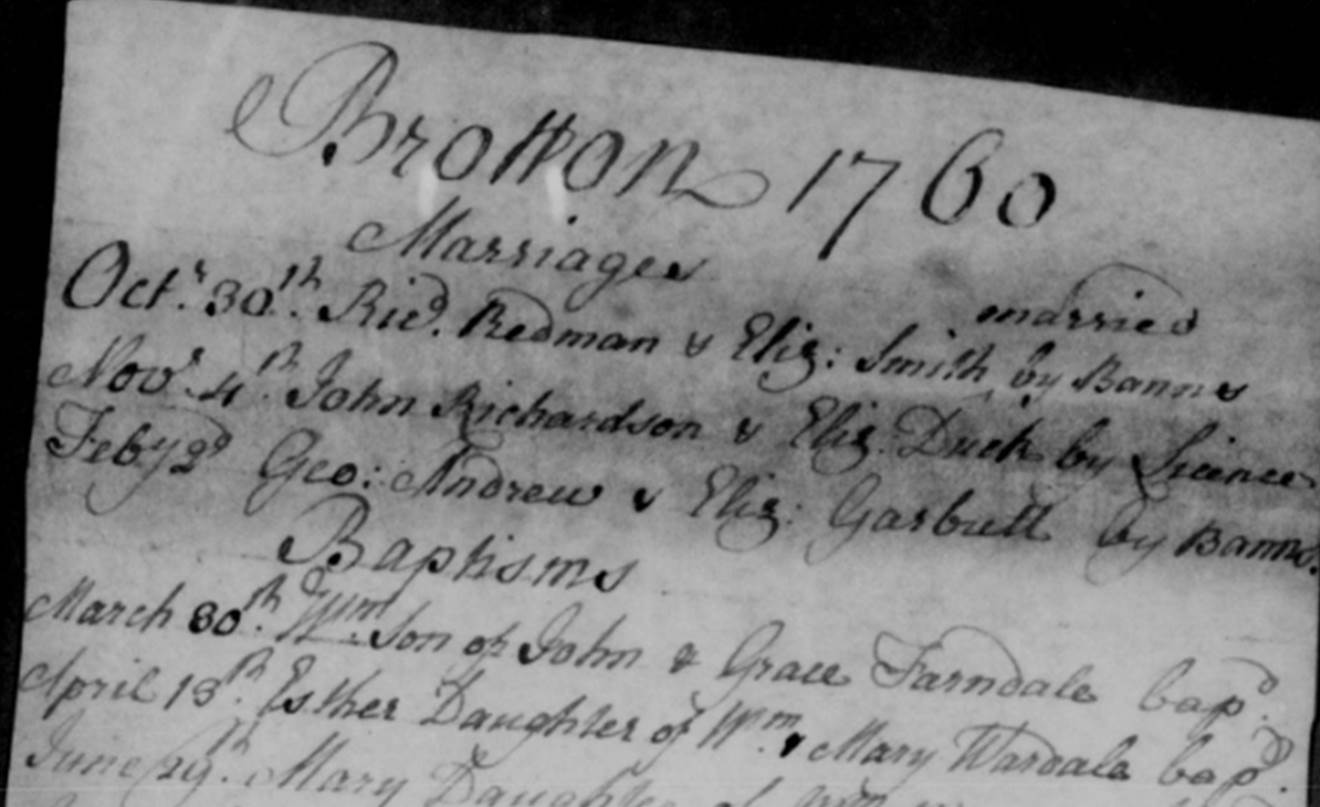 Brotton 1760
Marriages
married
Octr. 30th. Ricd. Redman & Eliz: Smith by Banns
Novr. 4th. John Richardson & Eliz. Duck by Licence
Feby 2d Geo: Andrew & Eliz: Garbutt by Banns.
Baptisms
March 30th. Wm. Son of John & Grace Farndale bapd.
April 13th. Esther Daughter of Wm. & Mary Wardale bapd.
June 29th. Mary Daughter of Wm